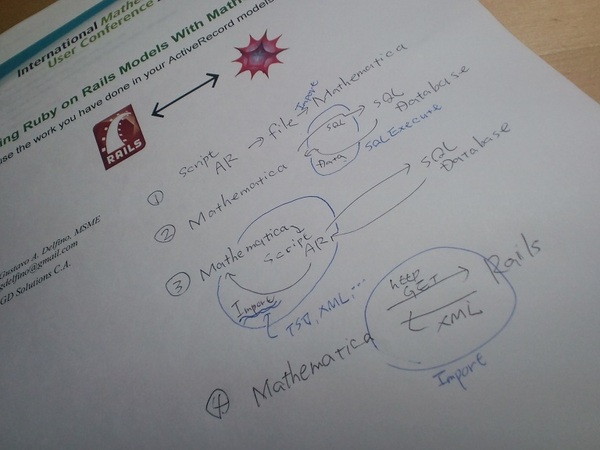 International Mathe
User Conference
ing Ruby on Rails Models With Math
use the work you have done in your ActiveRecord models
RAILS
Gustavo A. Delfino, MSME
gdelfino@gmail.com
GD Solutions C.A.
① Script AR → file → Import Mathematica
② Mathematica SQL Data SQL Database
SQLExecute
③ Mathematica Script AR SQL Database
Import
TSV, XML, ...
④ Mathematica http GET XML Rails
Import